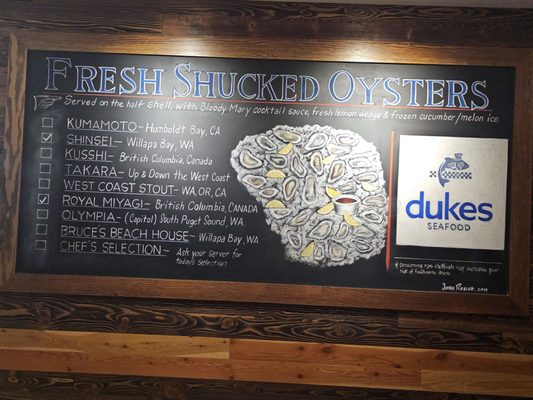 FRESH SHUCKED OYSTERS
Served on the half shell, with Bloody Mary cocktail sauce, fresh lemon wedge & frozen cucumber/melon ice
KUMAMOTO~ Humboldt Bay, CA.
SHINSEI~ Willapa Bay, WA
KUSSHI~ British Columbia, Canada
TAKARA~ Up & Down the West Coast
WEST COAST STOUT~ WA, OR, CA
ROYAL MIYAGI~ British Columbia, CANADA
OLYMPIA~ (Capitol) South Puget Sound, WA.
BRUCE'S BEACH HOUSE~ Willapa Bay, WA
CHEF'S SELECTION~ Ask your Server for
today's Selection!
dukes
SEAFOOD
* Consuming raw shellfish may increase your
risk of foodborne illness
.com